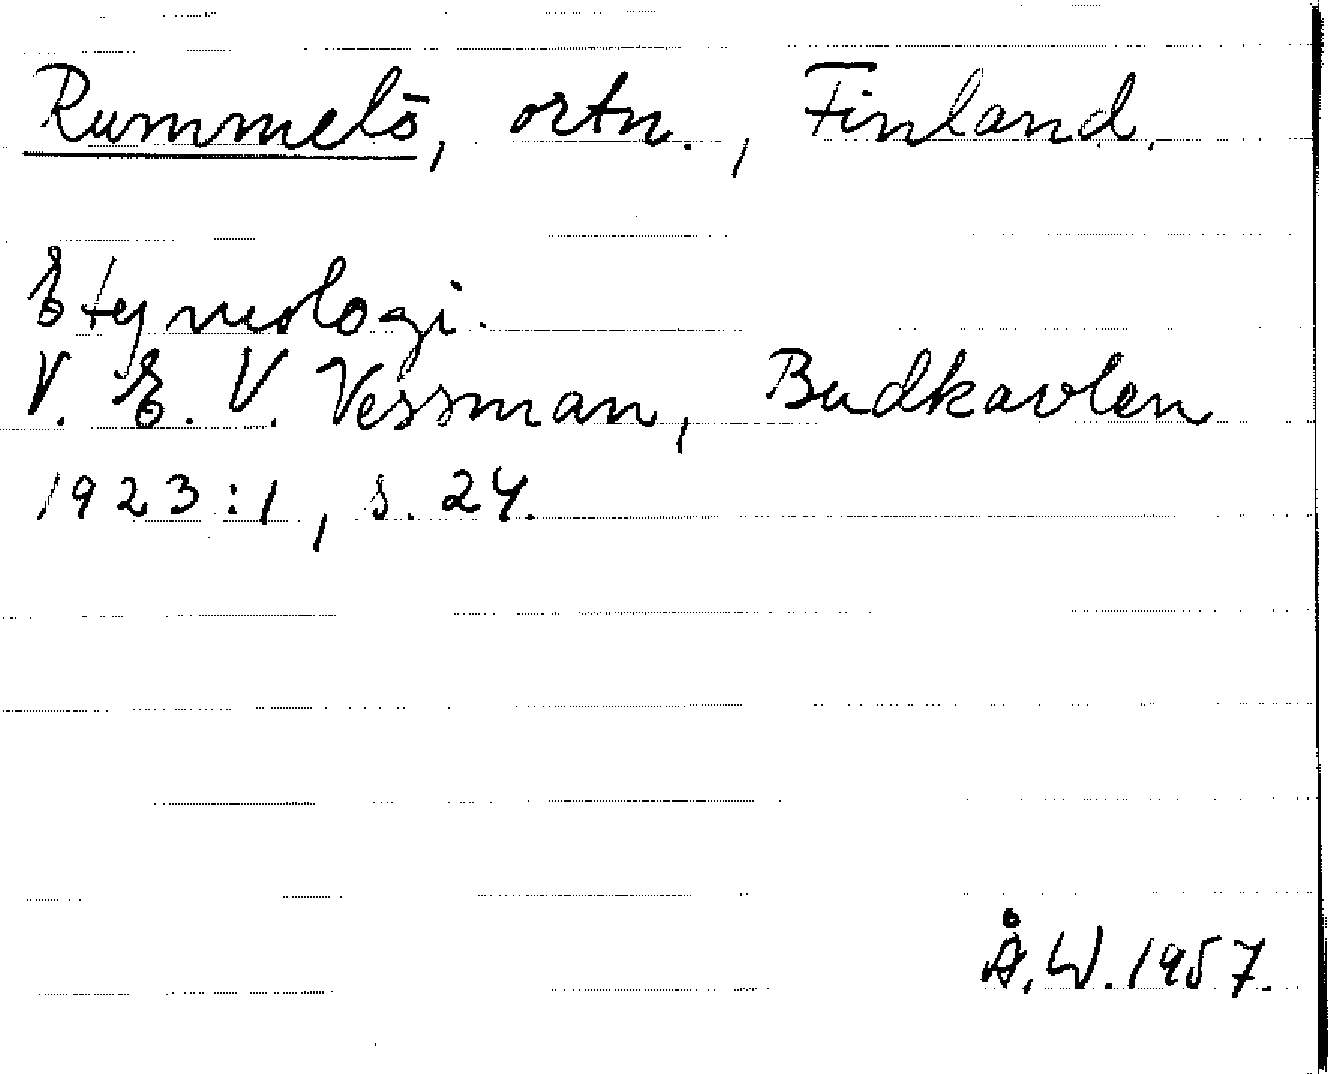 Rummelö, ortn., Finland.
Etymologi.
V. E. V. Vessman, Budkavlen
1923:1, s. 24.
Å. W. 1957.